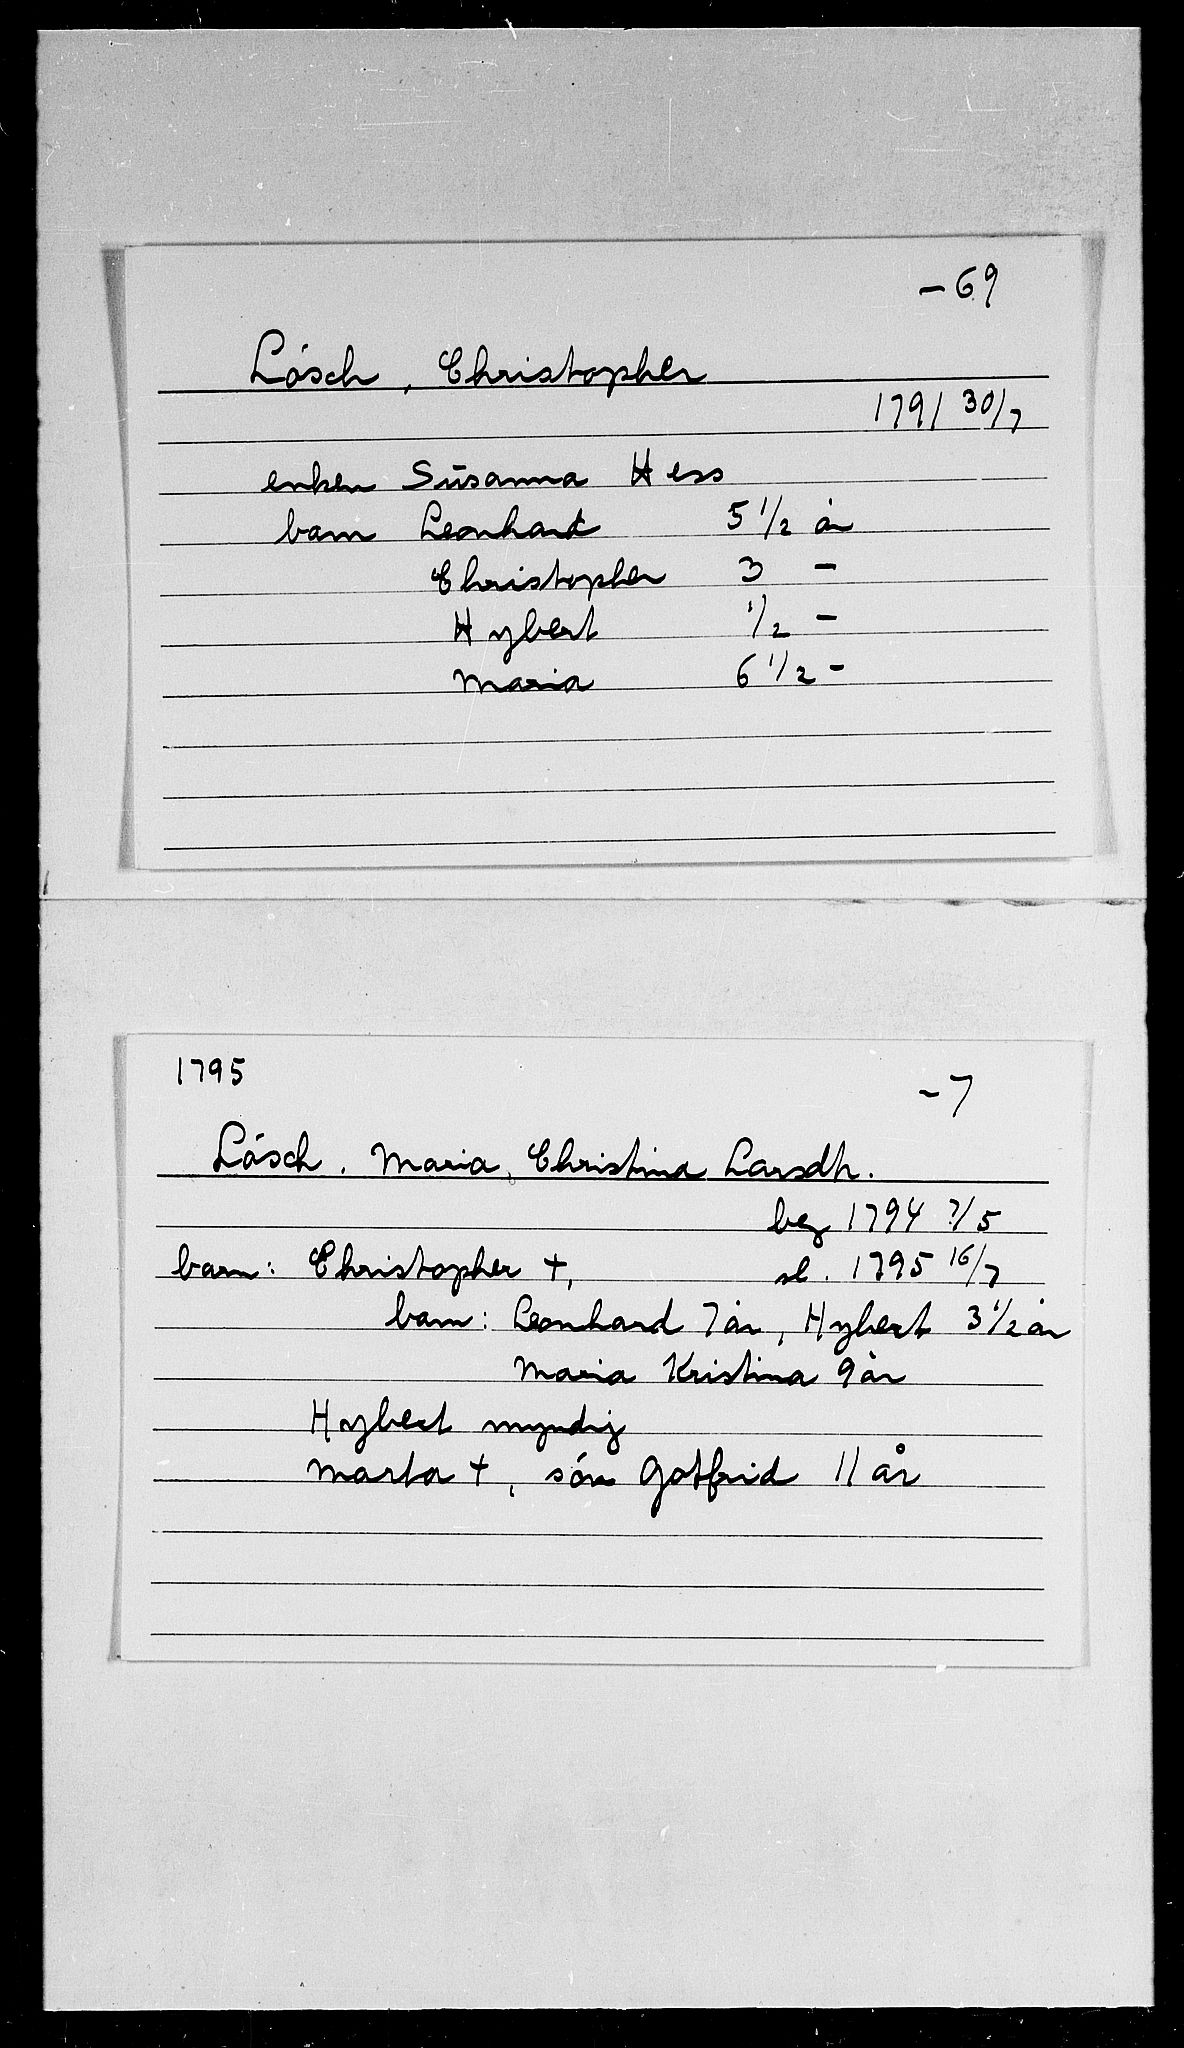 -69
Lösch, Christopher
1791 30/7
enken Susanna Hess
barn Leonhard 5 1/2 år
Christopher 3 -
Hybert 1/2 -
Maria 6 1/2 -
1795
-7
Lösch. Maria, Christina Larsdtr.
beg 1794 7/5
barn: Christopher +, sl. 1795 16/7
barn: Leonhard 7 år, Hybert 3 1/2 år
Maria Kristina 9 år
Hybert myndig
Marta +, sön Gotfrid 11 år